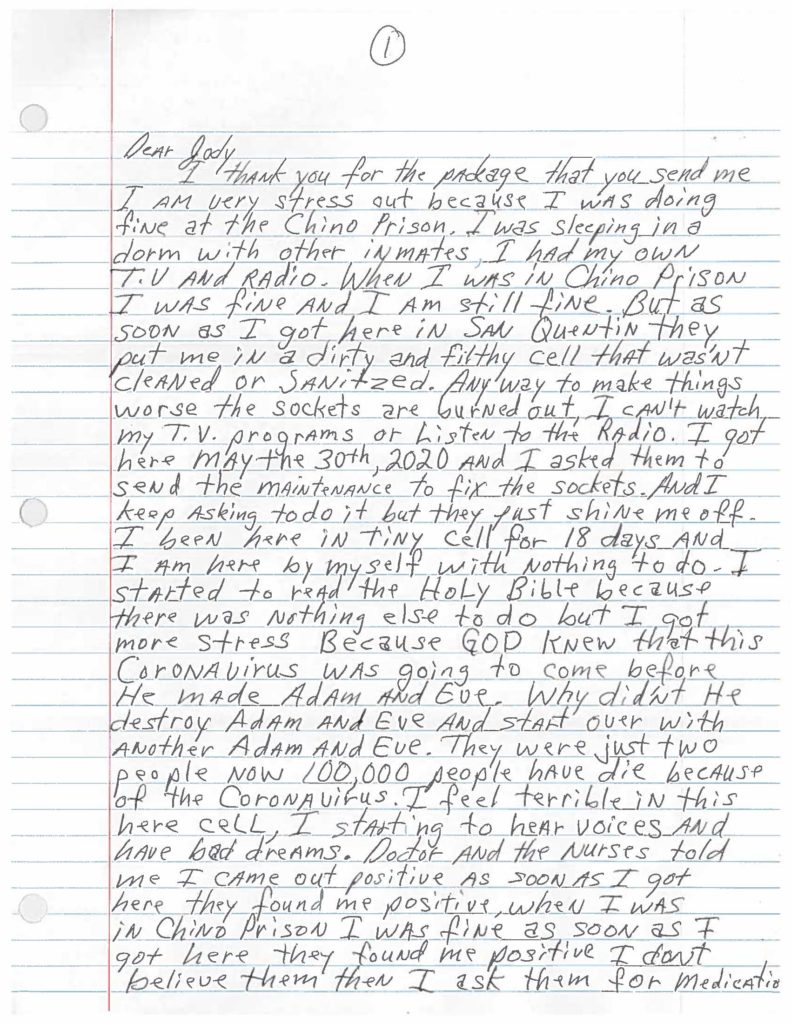 1
Dear Jody
I thank you for the package that you send me
I am very stress out because I was doing
fine at the Chino Prison. I was sleeping in a
dorm with other inmates, I had my own
T.V and Radio. When I was in Chino Prison
I was fine and I am still fine. But as
soon as I got here in San Quentin they
put me in a dirty and filthy cell that was'nt
cleaned or sanitzed. Any way to make things
worse the sockets are burned out, I can't watch
my T.V. programs or Listen to the Radio. I got
here may the 30th, 2020 and I asked them to
send the maintenance to fix the sockets. And I
keep asking to do it but they just shine me off.
I been here in tiny cell for 18 days and
I am here by myself with nothing to do. I
started to read the Holy Bible because
there was nothing else to do but I got
more stress Because GOD knew that this
Coronavirus was going to come before
He made Adam and Eve. Why did'nt He
destroy Adam and Eve and start over with
another Adam and Eve. They were just two
people now 100,000 people have die because
of the Coronavirus. I feel terrible in this
here cell, I starting to hear voices and
have bad dreams. Doctor and the Nurses told
me I came out positive as soon as I got
here they found me positive, when I was
in Chino Prison I was fine as soon as I
got here they found me positive I dont
believe them then I ask them for medicatio